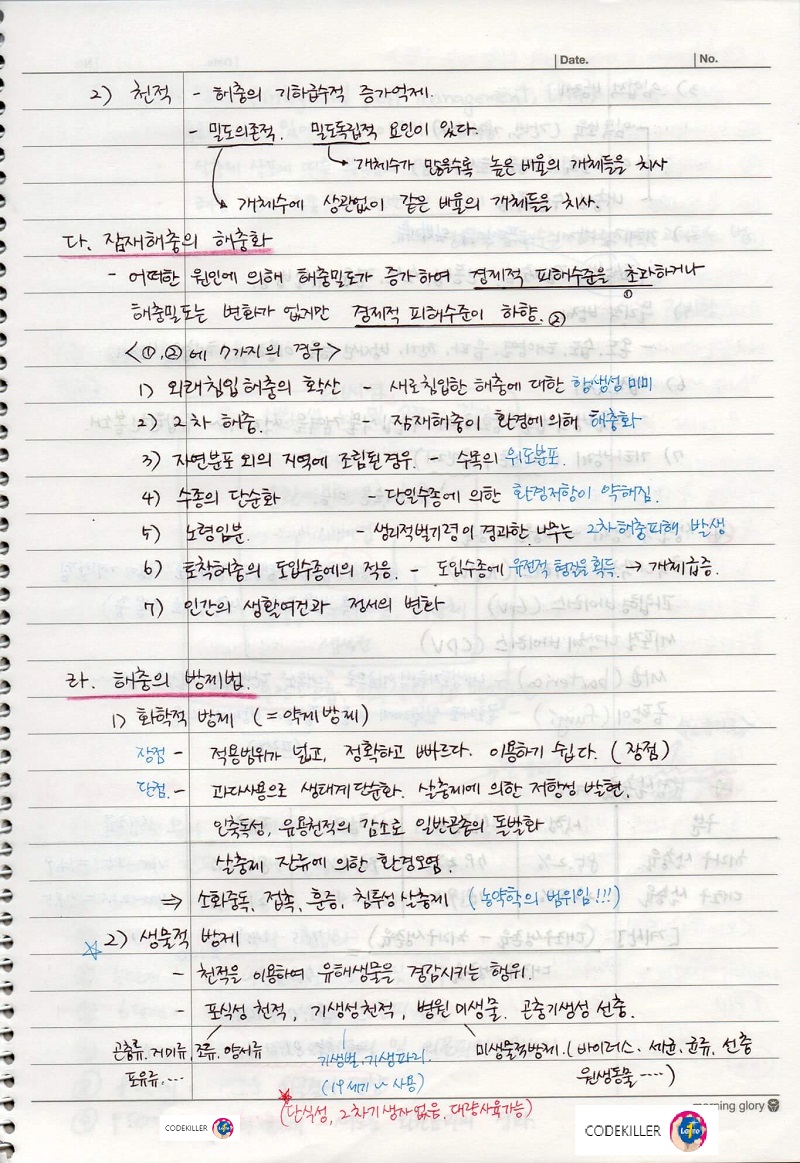 Date. No.
2) 천적 - 해충의 기하급수적 증가억제.
- 밀도의존적. 밀도독립적 요인이 있다.
개체수가 많을수록 높은 비율의 개체들을 치사
개체수에 상관없이 같은 비율의 개체들을 치사.
다. 잠재해충의 해충화
- 어떠한 원인에 의해 해충밀도가 증가하여 경제적 피해수준을 초과하거나 ①
해충밀도는 변화가 없지만 경제적 피해수준이 하향. ②
<①,②에 7가지의 경우>
1) 외래침입해충의 확산 - 새로침입한 해충에 대한 항생성 미미
2) 2차 해충. 잠재해충이 환경에 의해 해충화
3) 자연분포 외의 지역에 조림된경우. 수목의 위도분포.
4) 수종의 단순화 - 단일수종에 의한 환경저항이 약해짐.
5) 노령임분. - 생리적벌기령이 경과한 나무는 2차해충피해 발생
6) 토착해충의 도입수종에의 적응. - 도입수종에 유전적 형질을 획득. → 개체급증.
7) 인간의 생활여건과 정서의 변화
라. 해충의 방제법.
1) 화학적 방제 (= 약제방제)
장점 - 적용범위가 넓고, 정확하고 빠르다. 이용하기 쉽다. (장점)
단점. - 과다사용으로 생태계단순화. 살충제에 의한 저항성 발현.
인축독성, 유용천적의 감소로 일반곤충의 돌발화
살충제 잔류에 의한 환경오염.
⇒ 소화중독, 접촉, 훈증, 침투성 살충제 (농약학의 범위임!!!)
☆ 2) 생물적 방제
- 천적을 이용하여 유해생물을 경감시키는 행위.
- 포식성 천적, 기생성천적, 병원미생물. 곤충기생성 선충.
곤충류. 거미류, 조류. 양서류 기생벌, 기생파리. 미생물적방제. (바이러스. 세균, 균류, 선충
포유류, … (19세기~사용) 원생동물 ····)
★ (단식성, 2차기생자없음, 대량사육가능)
morning glory
CODEKILLER Lotto CODEKILLER Lotto